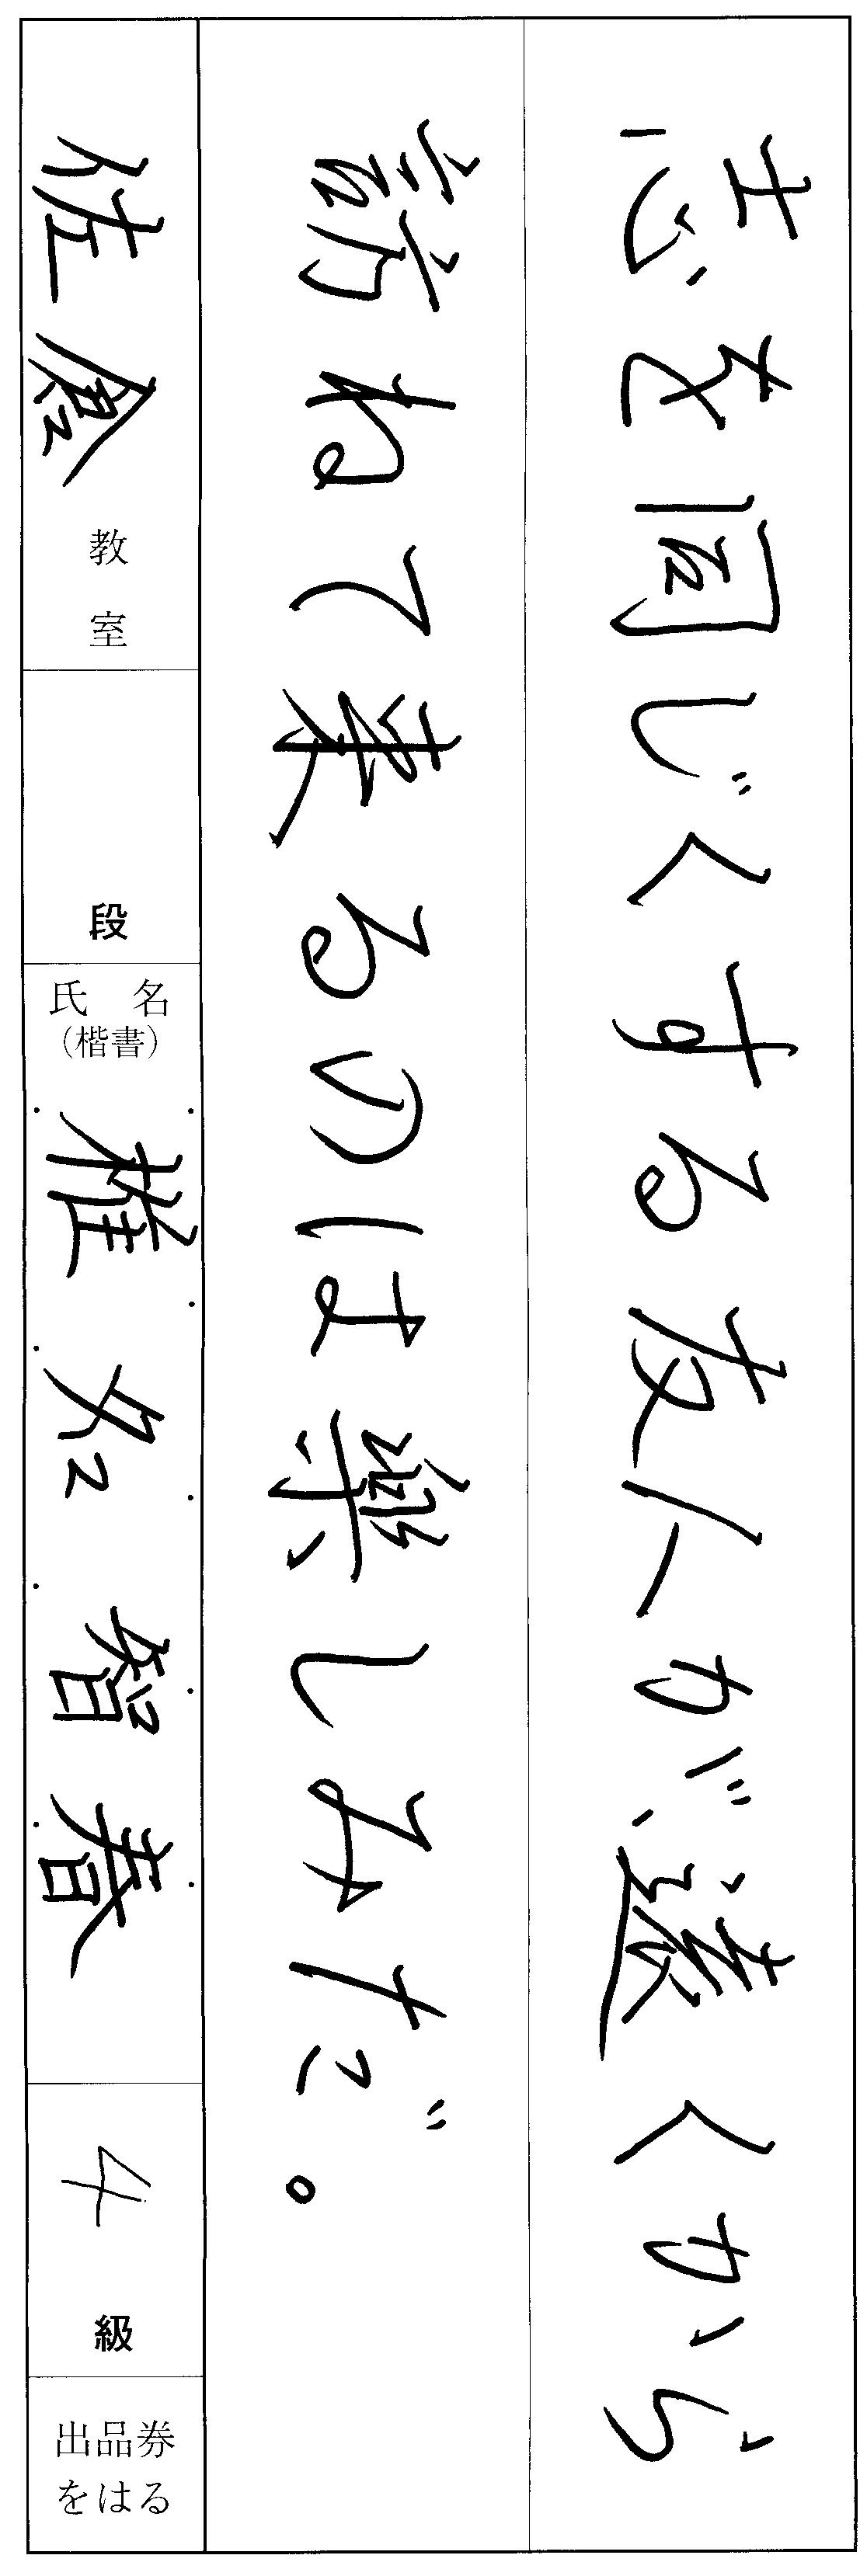 志を同じくする友人が遠くから
訪ねて来るのは楽しみだ。
佐倉教室
段
氏名
(楷書)
椎名智春
4級
出品券
をはる